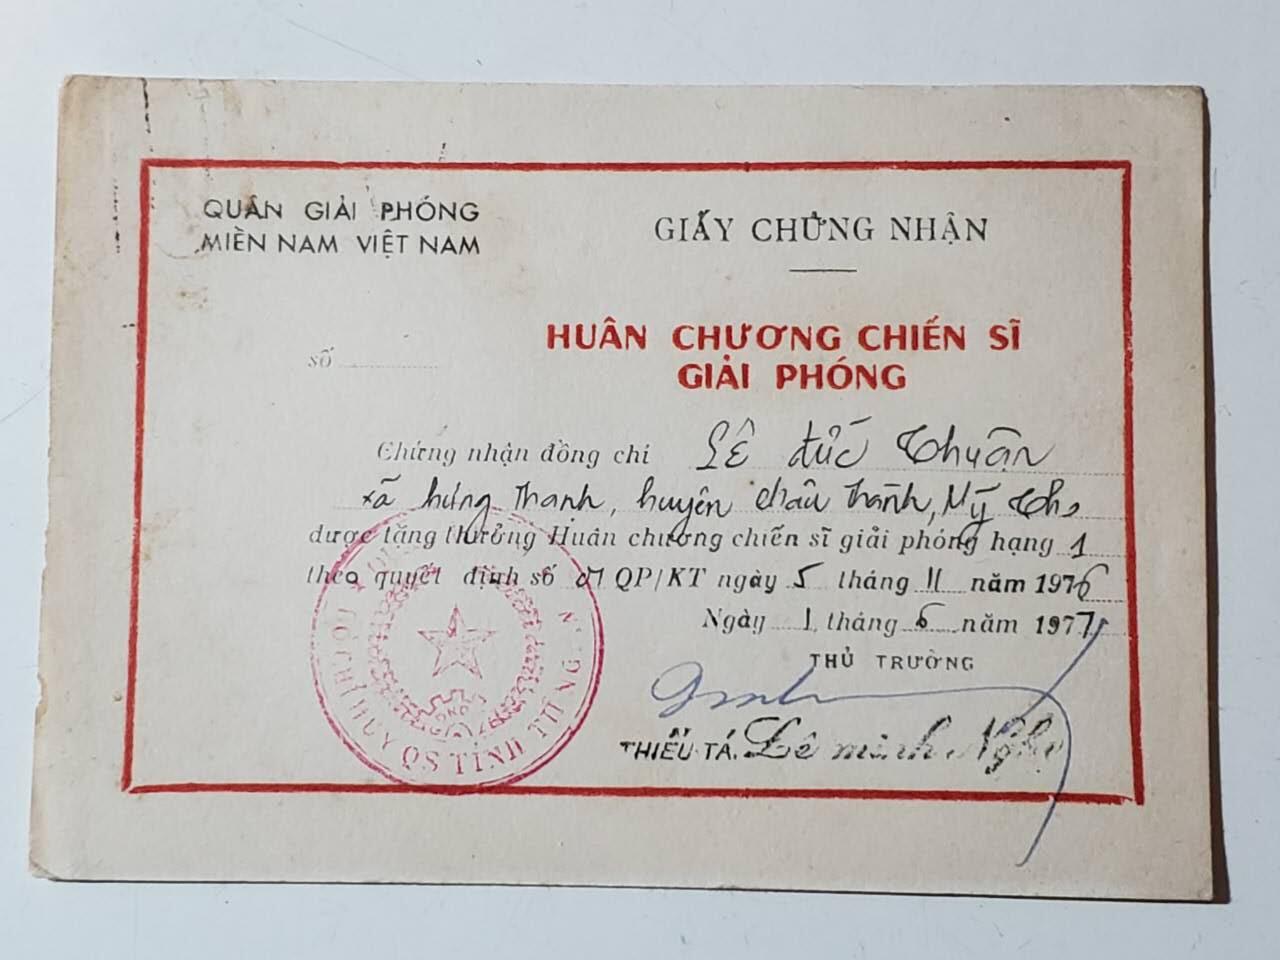 QUÂN GIẢI PHÓNG
MIỀN NAM VIỆT NAM
GIẤY CHỨNG NHẬN
số
HUÂN CHƯƠNG CHIẾN SĨ
GIẢI PHÓNG
Chứng nhận đồng chí Lê Đức Thuận
xã hưng Thạnh, huyện châu Thành, Mỹ Tho
được tặng thưởng Huân chương chiến sĩ giải phóng hạng 1
theo quyết định số QP/KT ngày 5 tháng 11 năm 1976
Ngày 1 tháng 6 năm 1977
THỦ TRƯỞNG
THIẾU TÁ. Lê minh
HUY QS TỈNH TIỀN